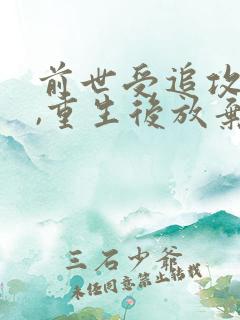 前世受追攻
,重生後放棄
三石少爺
未经同意禁止转载